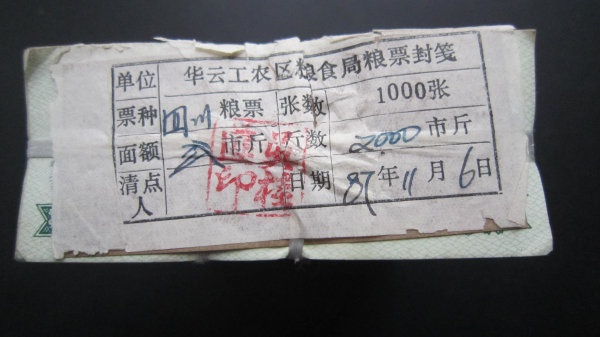 单位 华云工农区粮食局粮票封笺
票种 四川粮票 张数 1000张
面额 市斤 斤数 2000市斤
清点 日期 87年11月6日
人
印